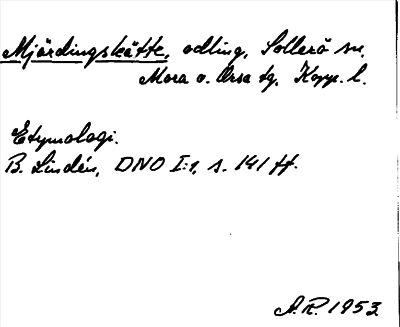 Mjärdingskätte, odling, Sollerö sn,
Mora o. Orsa tg, Kopp. l.
Etymologi.
B. Lindén, DNO I:1, s. 141 ff.
A.R. 1953.